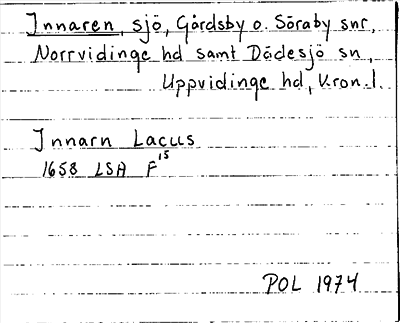 Innaren, sjö, Gårdsby o. Söraby snr,
Norrvidinge hd samt Dädesjö sn,
Uppvidinge hd, Kron. l.
Innarn Lacus
1658 LSA F15
POL 1974